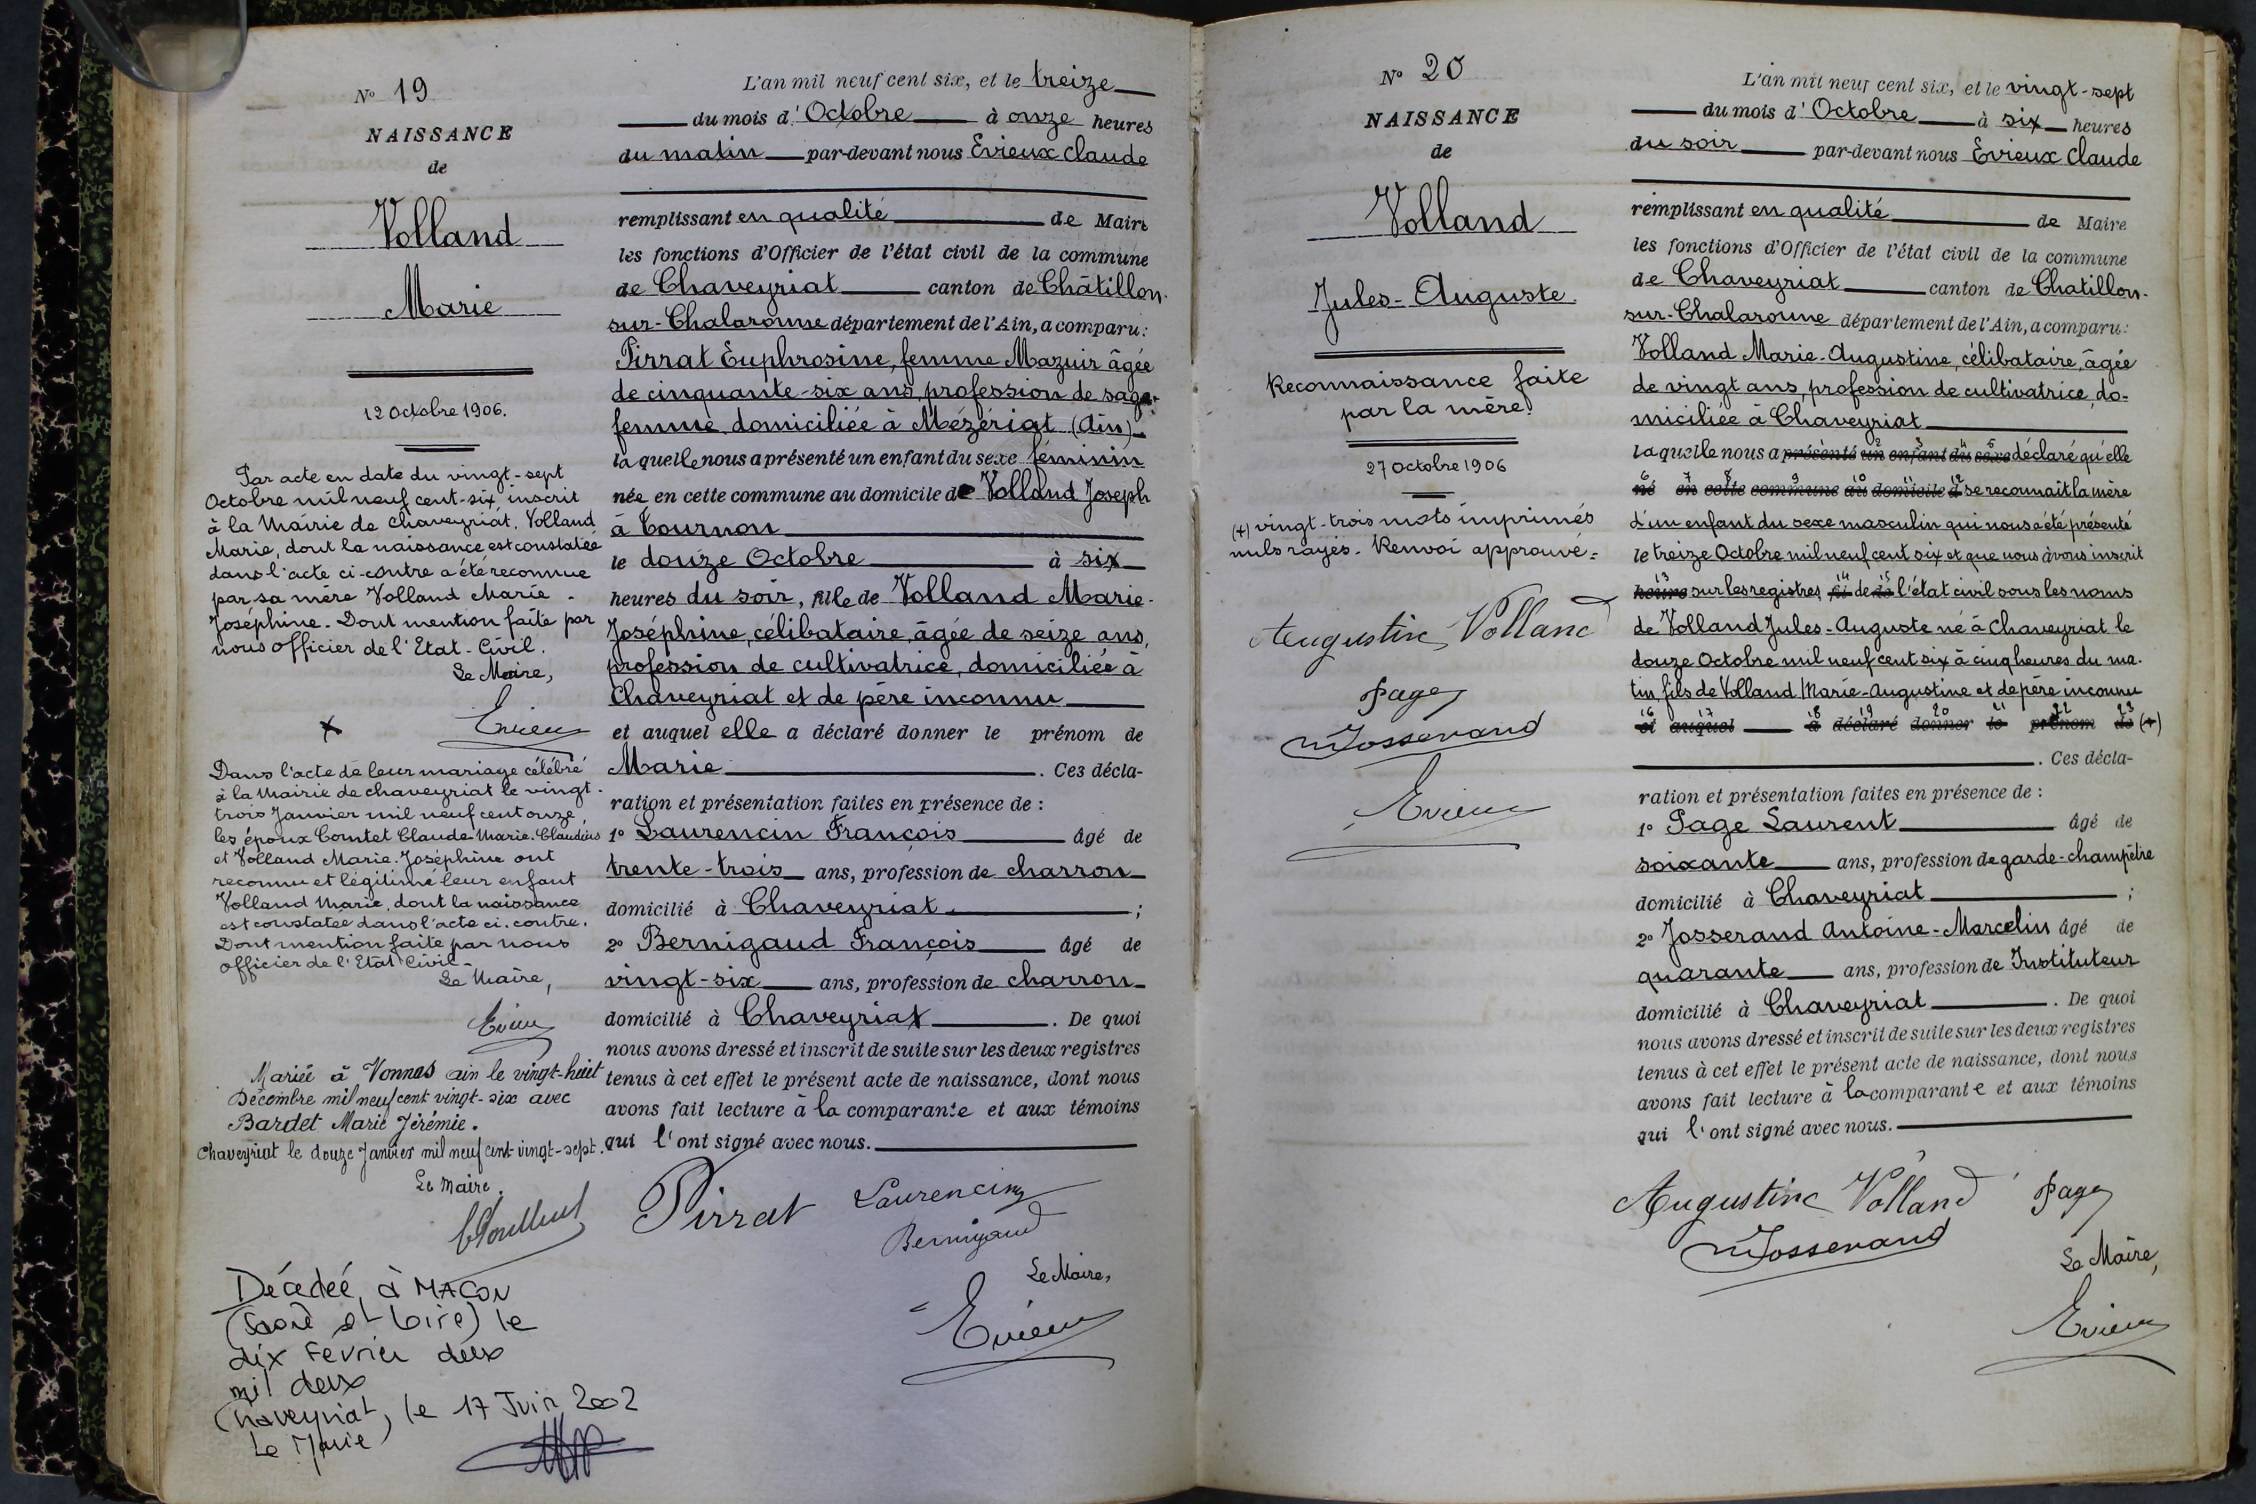 N° 19
NAISSANCE
de
Volland
Marie
12 Octobre 1906.
Par acte en date du vingt-sept
Octobre mil neuf cent-six, inscrit
à la Mairie de Chaveyriat, Volland
Marie, dont la naissance est constatée
dans l'acte ci-contre a été reconnue
par sa mère Volland Marie-
Joséphine. Dont mention faite par
nous officier de l'Etat-Civil.
Le Maire,
Evieux
Dans l'acte de leur mariage célébré
à la Mairie de Chaveyriat le vingt-
trois Janvier mil neuf cent onze,
les époux Comtet Claude-Marie-Claudius
et Volland Marie-Joséphine ont
reconnu et légitimé leur enfant
Volland Marie, dont la naissance
est constatée dans l'acte ci-contre.
Dont mention faite par nous
officier de l'Etat Civil-
Le Maire,
Evieux
Mariée à Vonnas Ain le vingt-huit
Décembre mil neuf cent vingt-six avec
Bardet Marie Jérémie.
Chaveyriat le douze Janvier mil neuf cent-vingt-sept.
Le Maire.
Décédée à MACON
(Saone et Loire) le
dix Fevrier deux
mil deux
Chaveyriat, le 17 Juin 2002
Le Maire
L'an mil neuf cent six, et le treize
du mois d'Octobre à onze heures
du matin par-devant nous Evieux Claude
remplissant en qualité de Maire
les fonctions d'Officier de l'état civil de la commune
de Chaveyriat canton de Châtillon-
sur-Chalaronne département de l'Ain, a comparu:
Pirrat Euphrosine, femme Mazuir âgée
de cinquante-six ans, profession de sage-
femme domiciliée à Mézériat (Ain)
laquelle nous a présenté un enfant du sexe féminin
née en cette commune au domicile de Volland Joseph
à Tournon
le douze Octobre à six
heures du soir, fille de Volland Marie-
Joséphine, célibataire, âgée de seize ans,
profession de cultivatrice, domiciliée à
Chaveyriat et de père inconnu
et auquel elle a déclaré donner le prénom de
Marie. Ces décla-
ration et présentation faites en présence de :
1° Laurencin François âgé de
trente-trois ans, profession de charron
domicilié à Chaveyriat ;
2° Bernigaud François âgé de
vingt-six ans, profession de charron
domicilié à Chaveyriat. De quoi
nous avons dressé et inscrit de suite sur les deux registres
tenus à cet effet le présent acte de naissance, dont nous
avons fait lecture à la comparante et aux témoins
qui l'ont signé avec nous.
Pirrat Laurencin
Bernigaud
Le Maire,
Evieux
N° 20
NAISSANCE
de
Volland
Jules-Auguste
Reconnaissance faite
par la mère.
27 Octobre 1906
(+) vingt-trois mots imprimés
nuls rayés. Renvoi approuvé =
Augustine Volland
Page
Josserand
Evieux
L'an mil neuf cent six, et le vingt-sept
du mois d'Octobre à six heures
du soir par-devant nous Evieux Claude
remplissant en qualité de Maire
les fonctions d'Officier de l'état civil de la commune
de Chaveyriat canton de Chatillon-
sur-Chalaronne département de l'Ain, a comparu:
Volland Marie-Augustine, célibataire, âgée
de vingt ans, profession de cultivatrice, do-
miciliée à Chaveyriat
laquelle nous a présenté un enfant du sexe déclaré qu'elle
né en cette commune au domicile d se reconnait la mère
d'un enfant du sexe masculin qui nous a été présenté
le treize Octobre mil neuf cent six et que nous avons inscrit
heures sur les registres fil de de l'état civil sous les noms
de Volland Jules-Auguste né à Chaveyriat le
douze Octobre mil neuf cent six à cinq heures du ma-
tin, fils de Volland Marie-Augustine et de père inconnu
et auquel a déclaré donner le prénom de (+)
. Ces décla-
ration et présentation faites en présence de :
1° Page Laurent âgé de
soixante ans, profession de garde-champêtre
domicilié à Chaveyriat ;
2° Josserand Antoine-Marcelin âgé de
quarante ans, profession de Instituteur
domicilié à Chaveyriat. De quoi
nous avons dressé et inscrit de suite sur les deux registres
tenus à cet effet le présent acte de naissance, dont nous
avons fait lecture à la comparante et aux témoins
qui l'ont signé avec nous.
Augustine Volland Page
Josserand
Le Maire,
Evieux